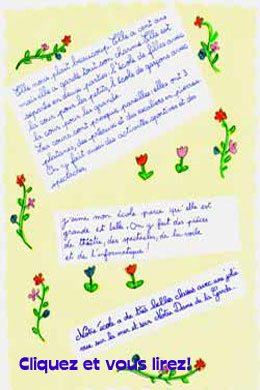 Elle nous plaît beaucoup. Elle a cent ans
mais elle a gardé tout son charme. Elle est
séparée en deux parties : l'école de filles avec
la cour pour les petits, l'école de garçons avec
la cour pour les grands.
Les cours sont presque pareilles : elles ont 3
platanes, des préaux et des escaliers en pierres.
On y fait aussi des activités sportives et des
spectacles.
J'aime mon école parce qu'elle est
grande et belle. On y fait des pièces
de théâtre, des spectacles, de la voile
et de l'informatique !
Notre école a de très belles classes avec une jolie
vue sur la mer et sur Notre Dame de la Garde.
Cliquez et vous lirez!